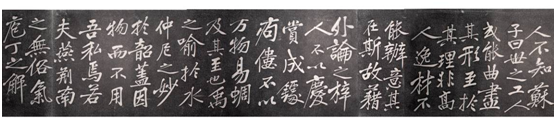 人不知蘇
子曰世之工人
或能曲盡
其形至於
其理非高
人逸材不
能辦意其
在斯故藉
外論之梓
人不以慶
賞成鐻
痀僂不以
萬物易蜩
及其至也禹
之喻於水
仲尼之妙
於韶蓋因
物而不用
吾私焉若
夫燕荆南
之無俗氣
庖丁之解